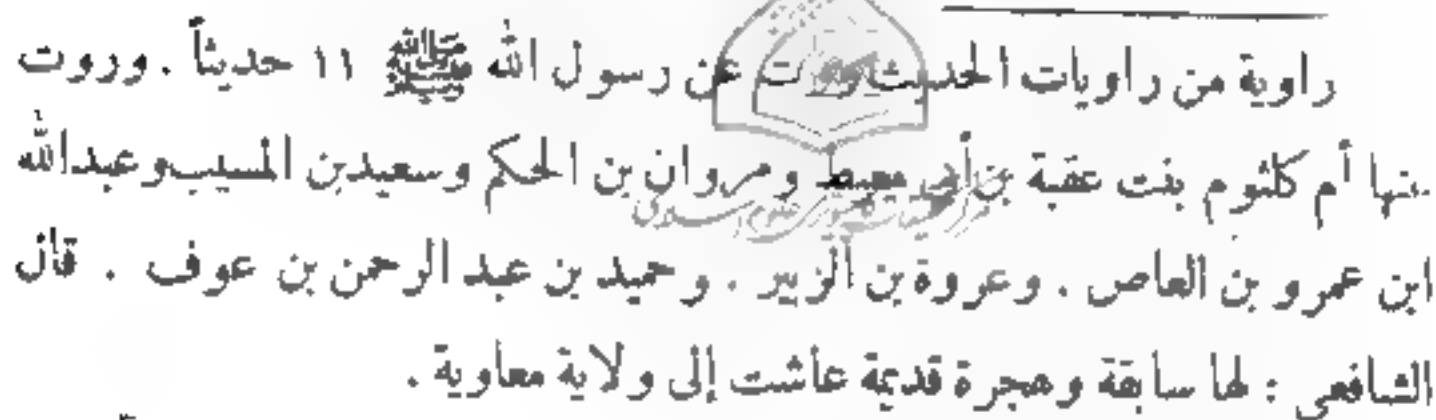 راوية من راويات الحديث روت عن رسول الله ﷺ ١١ حديثاً . وروت
عنها أم كلثوم بنت عقبة بن أبي معيط ومروان بن الحكم وسعيد بن المسيب وعبدالله
ابن عمرو بن العاص . وعروة بن الزبير . وحميد بن عبد الرحمن بن عوف . قال
الشافعي : لها سابقة وهجرة قديمة عاشت إلى ولاية معاوية .